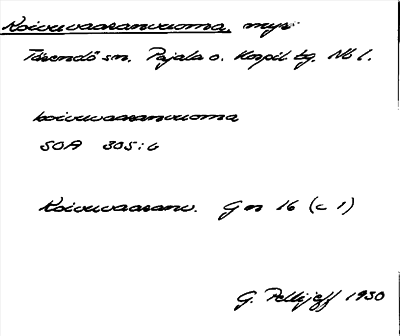 Koivuvaaranvuoma, myr
Tärendö sn. Pajala o. Korpil. tg. Nb l.
koivuvaaranvuoma
SOA 305:6
Koivuvaaranv. G m 16 (c 1)
G. Pellijeff 1930